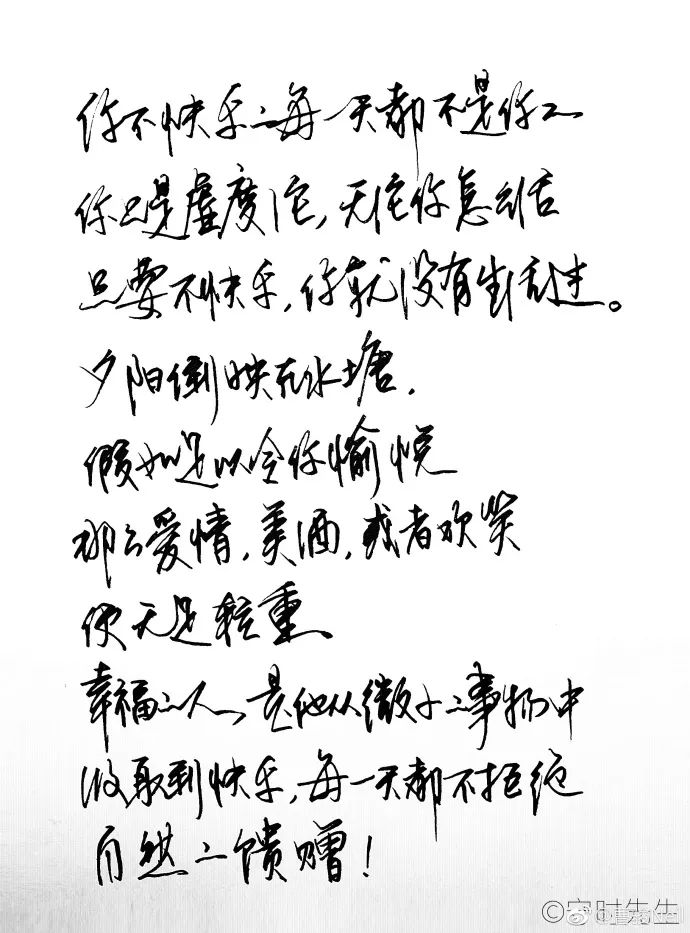 你不快乐的每一天都不是你的
你只是虚度它,无论你怎么活
只要不快乐,你就没有生活过。
夕阳倒映在水塘,
假如足以令你愉悦
那么爱情,美酒,或者欢笑
便无足轻重
幸福的人,是他从微小的事物中
汲取到快乐,每一天都不拒绝
自然的馈赠!